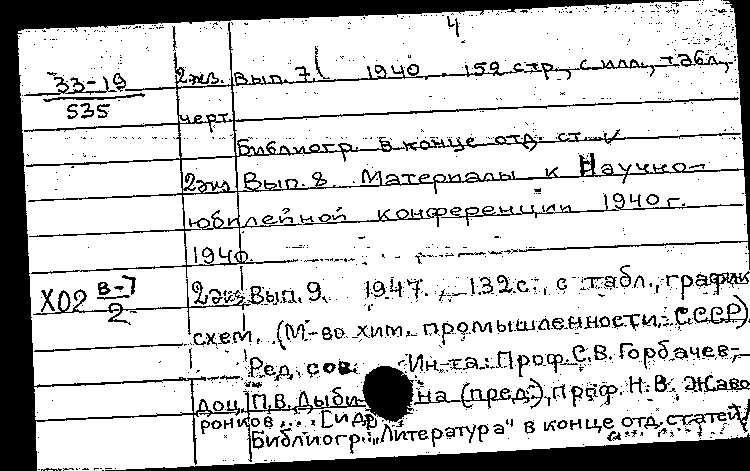 4
33-19 2экз. Вып. 7. 1940. 152 стр., с илл., табл.,
535
черт.
Библиогр. в конце отд. ст.
2экз Вып. 8. Материалы к Научно-
юбилейной конференции 1940 г.
1940
Х02 В-7 2экз Вып. 9. 1947., 132 с., с табл., график
2
схем. (М-во хим. промышленности СССР)
Ред. сов. Ин-та: Проф. С.В. Горбачев,
доц. П.В. Дыбина (пред.), Проф. Н.В. Жаво
ронков ... [и др
Библиогр. "Литература" в конце отд. статей